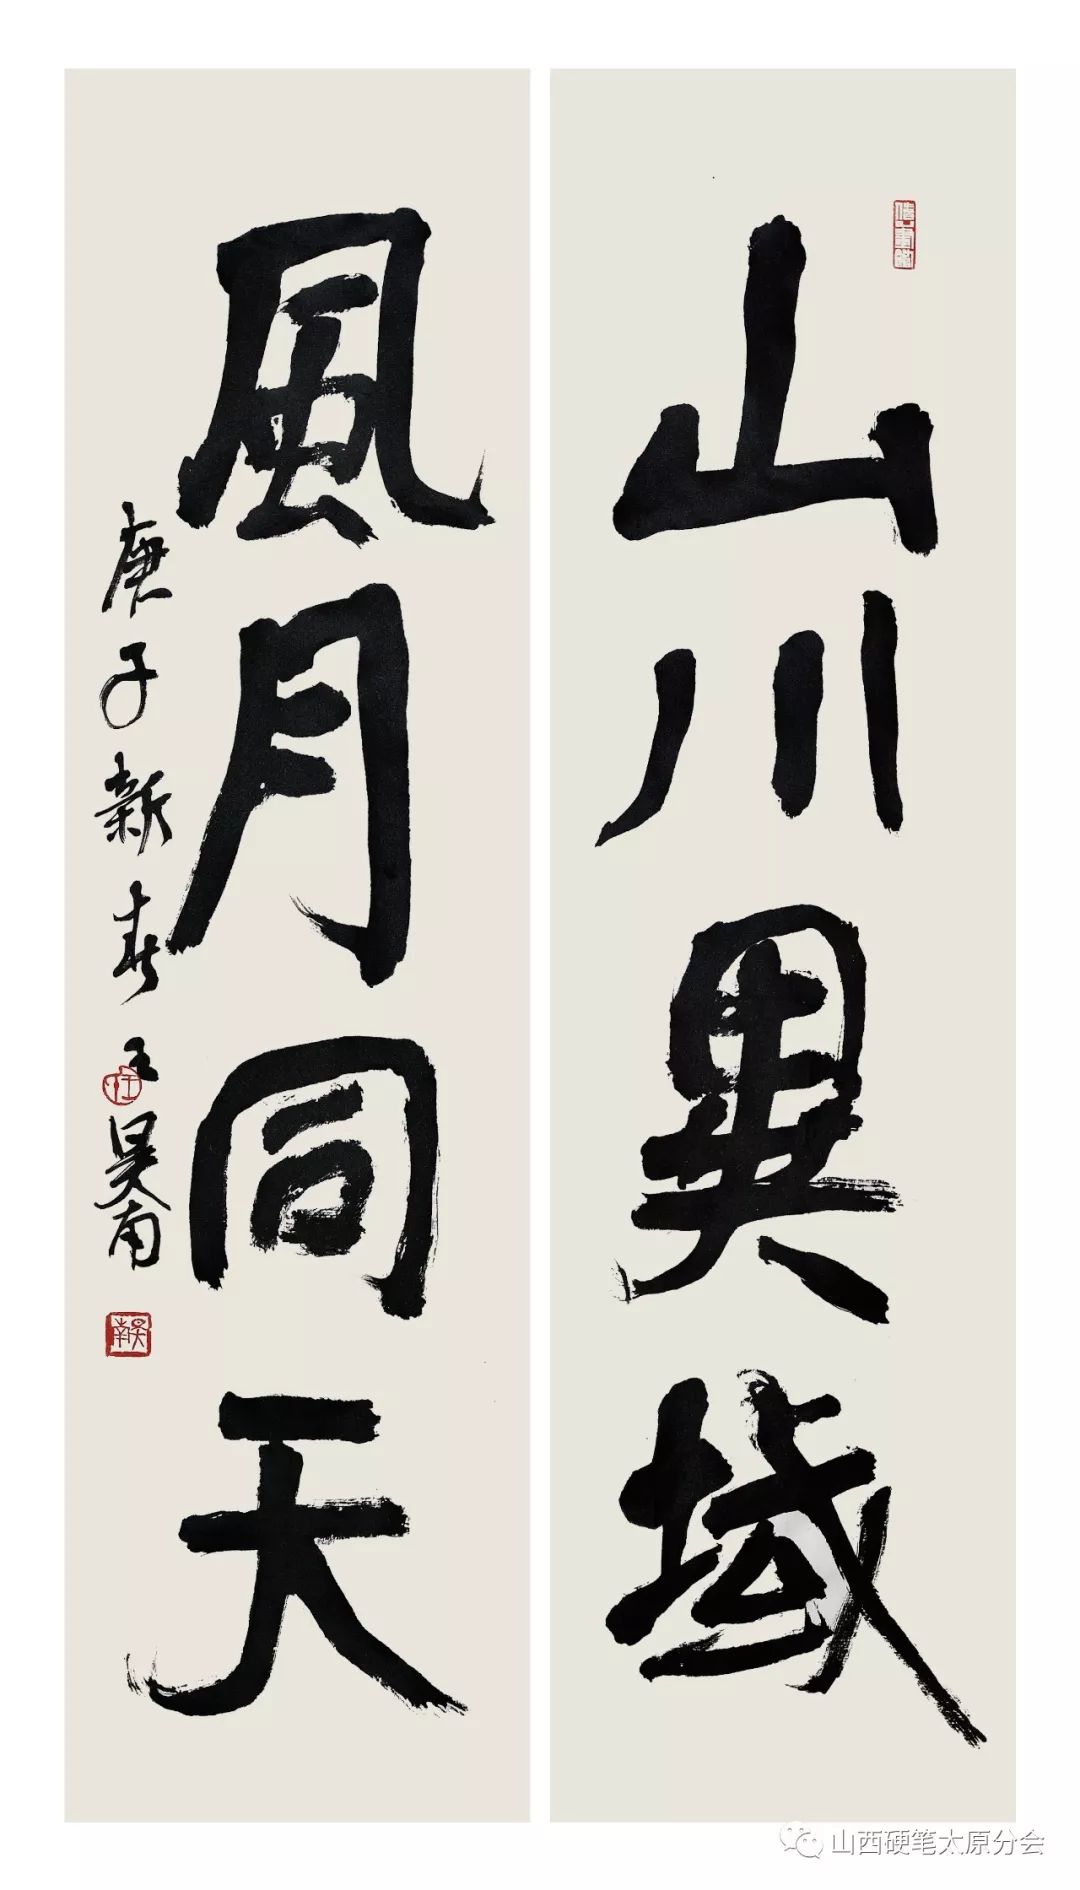 山川異域
風月同天
庚子新春王昊南
昊南
山西硬笔太原分会